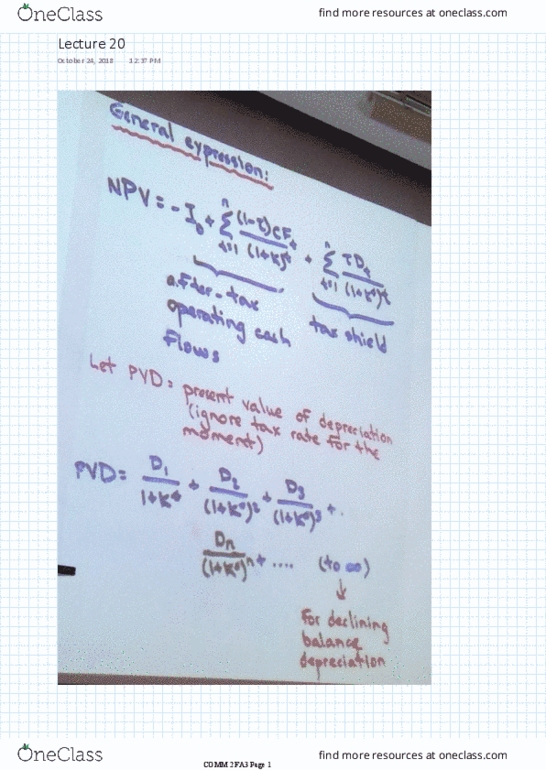 OneClass find more resources at oneclass.com
Lecture 20
October 24, 2018 12:37 PM
General expression:
NPV = - I₀ + Σ (t=1 to n) (1-τ)CFₜ / (1+K*)ᵗ + Σ (t=1 to n) τDₜ / (1+K*)ᵗ
after-tax
operating cash
flows
tax shield
Let PVD = present value of depreciation
(ignore tax rate for the
moment)
PVD = D₁ / 1+K* + D₂ / (1+K*)² + D₃ / (1+K*)³ + ..
Dₙ / (1+K*)ⁿ + .... (to ∞)
↓
For declining
balance
depreciation
OneClass find more resources at oneclass.com
COMM 2FA3 Page 1